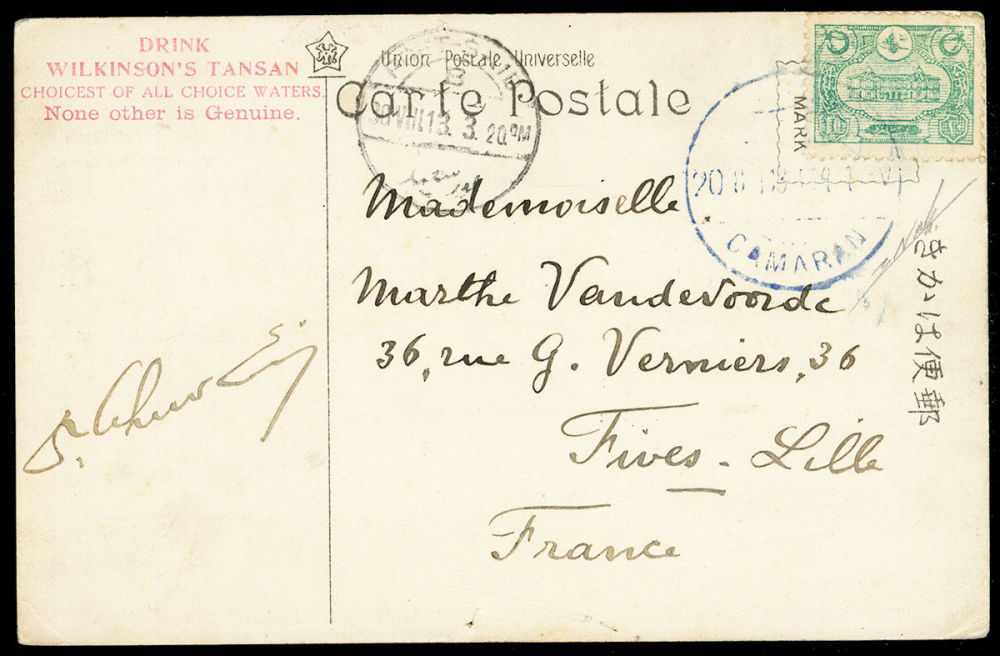 DRINK
WILKINSON'S TANSAN
CHOICEST OF ALL CHOICE WATERS.
None other is Genuine.
Union Postale Universelle
Carte Postale
MARK
10
CAMARAN
Mademoiselle
Marthe Vandevoorde
36, rue G. Verniers, 36
Fives - Lille
France
郵便はかき